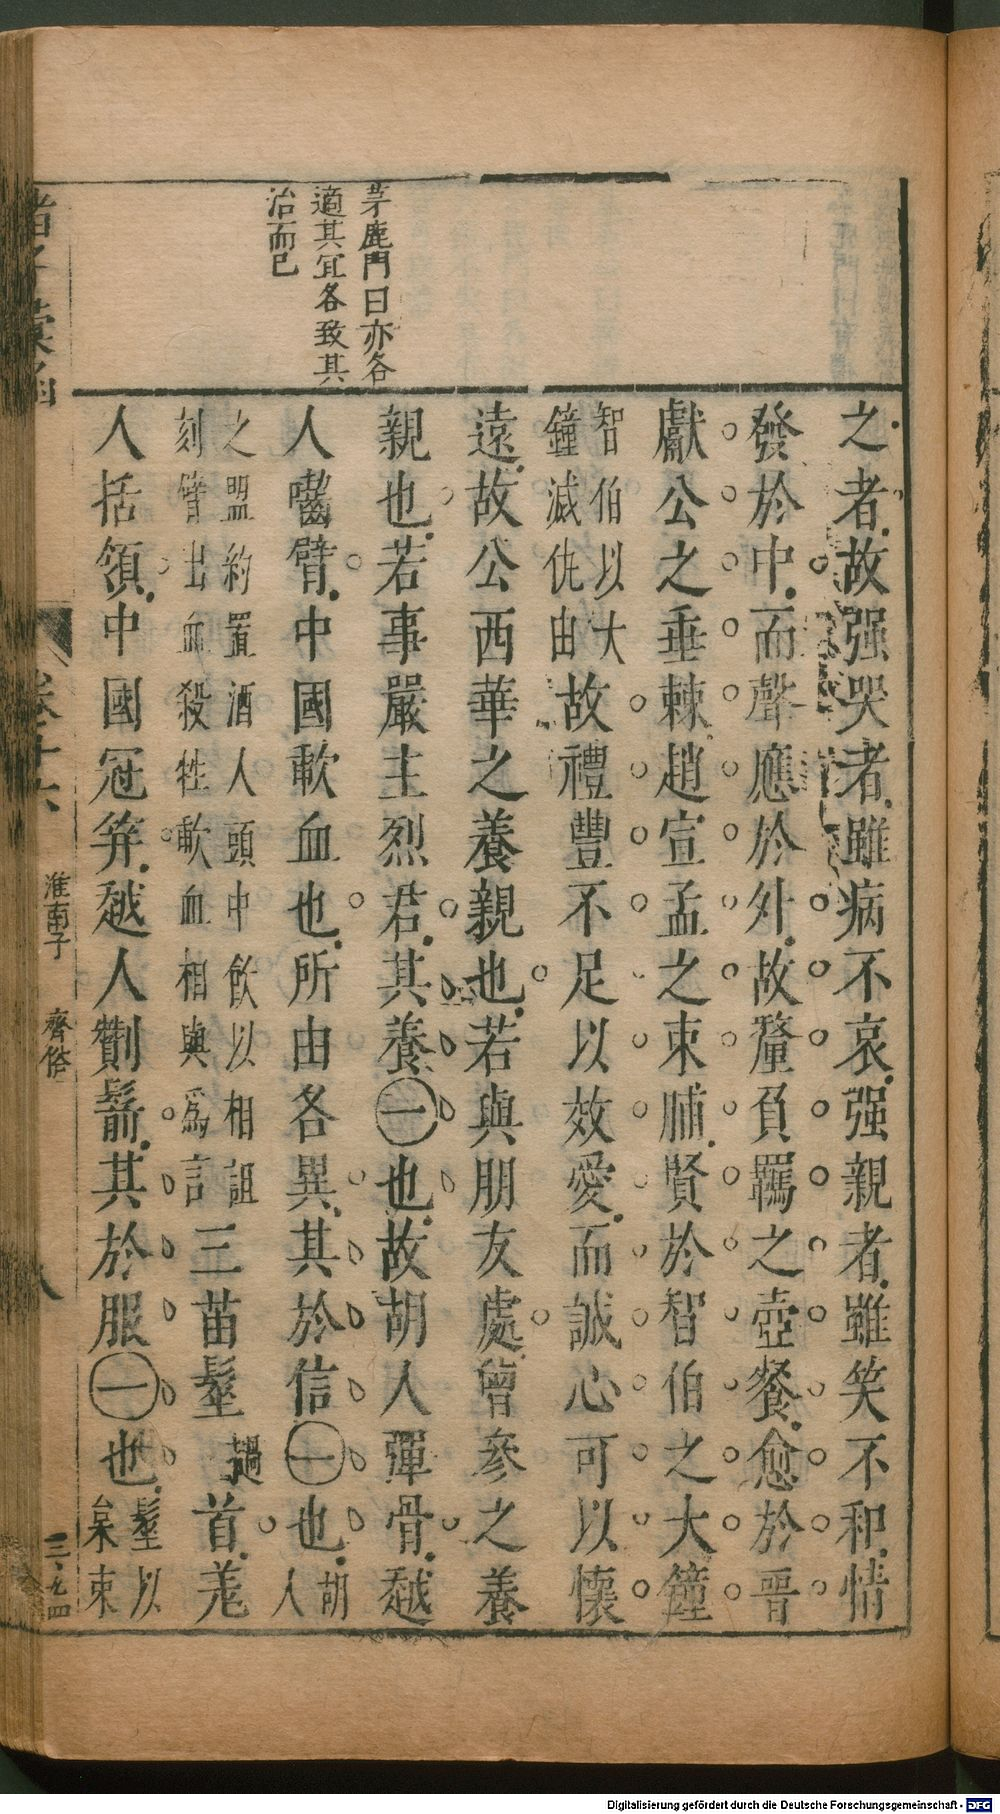 茅鹿門曰亦各
適其宜各致其
治而已
之者故强哭者雖病不哀强親者雖笑不和情
發於中而聲應於外故釐負羈之壺餐愈於晋
獻公之垂棘趙宣孟之束脯賢於智伯之大鐘
智伯以大
鐘滅仇由
故禮豐不足以效愛而誠心可以懷
遠故公西華之養親也若與朋友處曾參之養
親也若事嚴主烈君其養一也故胡人彈骨越
人囓臂中國歃血也所由各異其於信一也
胡
人
之盟約置酒人頭中飲以相詛
刻臂出血殺牲歃血相與爲言
三苗髽
首羗
人括領中國冠笄越人劗鬋其於服一也
髽以
枲束
卷十六
淮南子
齊俗
八
Digitalisierung gefördert durch die Deutsche Forschungsgemeinschaft - DFG